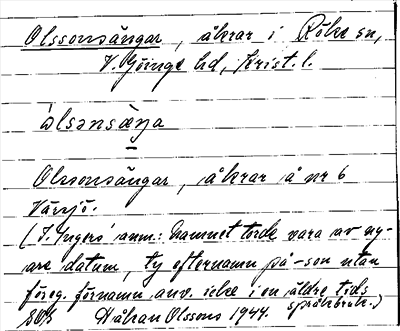 Olssonsängar, åkrar i Röke sn,
V. Göinge hd, Krist. l.
àlsənsæŋa
Olssonsängar, åkrar å nr 6
Värsjö.
(I. Ingers' anm.: Namnet torde vara av ny-
are datum, ty efternamn på -son utan
föreg. förnamn anv. icke i en äldre tids
språkbruk.)
Håkan Olssons 1944.